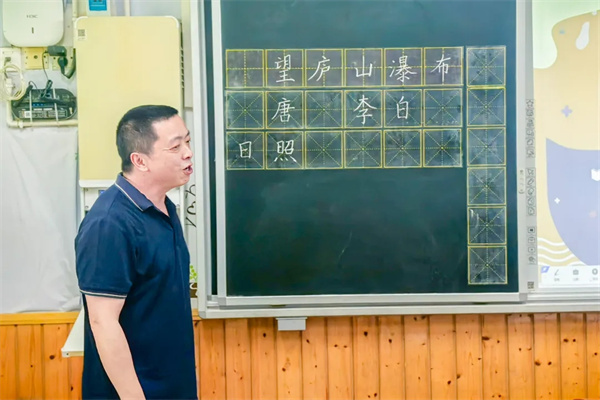 望庐山瀑布
唐 李白
日照